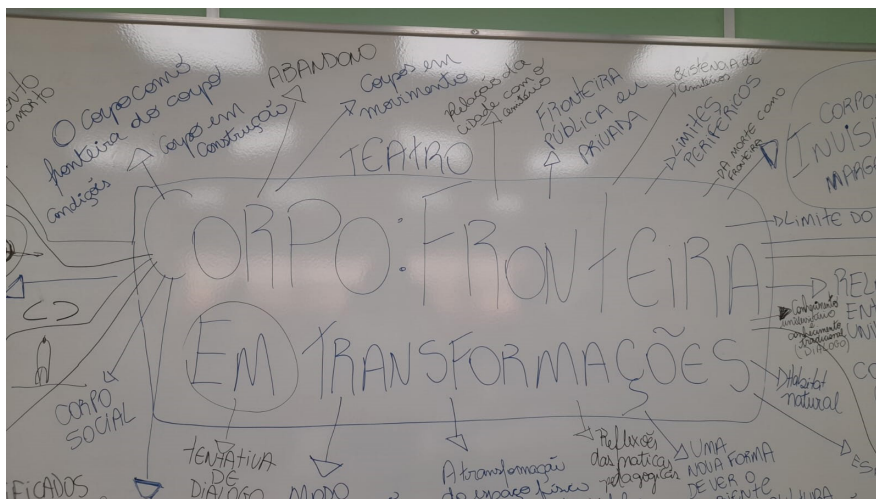 O Corpo como
fronteira do corpo
condições
Corpo em
Construção
ABANDONO
Corpos em
movimento
TEATRO
Relação da
cidade com o
cemitério
FRONTEIRA
PÚBLICA ou
PRIVADA
Existência de
cemitérios
LIMITES
PERIFÉRICOS
DA MORTE COMO
FRONTEIRA
CORPO
INVISI
MARG
CORPO: FRONTEIRA
EM TRANSFORMAÇÕES
LIMITE DO
REL
Conhecimento
conhecimento
tradicional
(DIÁLOGO)
ENT
UNI
Habitat
natural
CORPO
SOCIAL
TENTATIVA
DE
DIÁLOGO
MODO
A transformação
do espaço físico
Reflexões
das práticas
pedagógicas
UMA
NOVA FORMA
DE VER O
FICADOS